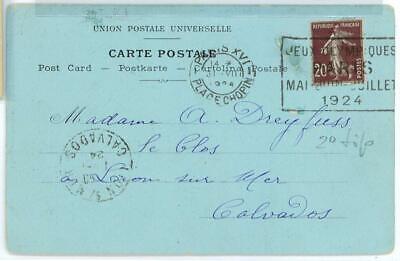 UNION POSTALE UNIVERSELLE
CARTE POSTALE
Post Card - Postkarte - Cartolina Postale
PARIS XVI
14
31 VII
1924
PLACE CHOPIN
REPUBLIQUE FRANÇAISE
20
POSTES
JEUX OLYMPIQUES
PARIS
MAI JUILLET
1924
Madame A. Dreyfuss
le Clos
a Lion sur Mer
Calvados
LION S
24
CALVADOS